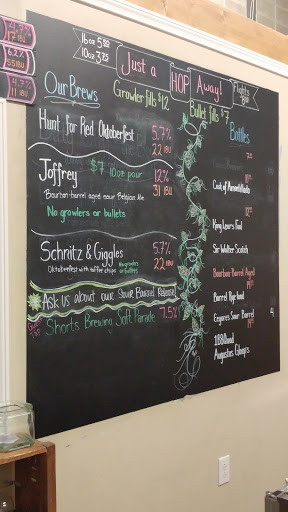 16oz 5.00
10oz 3.75
Just a HOP Away!
Flights
17 IBU
6.2%
55 IBU
4.7%
11 IBU
Our Brews
Growler fills $12
Bullet fills $7
Hunt for Red Oktoberfest 5.7%
22 IBU
Joffrey $7 10oz pour 12%
31 IBU
Bourbon-barrel aged sour Belgian Ale
No growlers or bullets
Schnitz & Giggles 5.7%
Oktoberfest with toffee chips No growlers or bullets 22 IBU
Ask us about our Sour Barrel Release!
Shorts Brewing Soft Parade 7.5%
Bottles
King Lear's Fool
Sir Walter Scotch
Bourbon Barrel Aged
Barrel Rye
Sour Barrel
Augustus